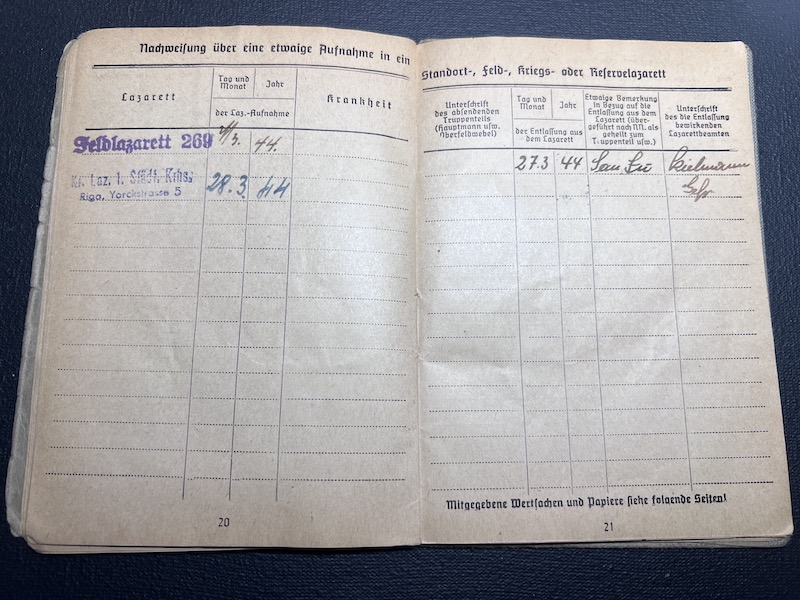 Nachweisung über eine etwaige Aufnahme in ein
Lazarett
Tag und
Monat
Jahr
der Laz.-Aufnahme
Krankheit
Feldlazarett 269
/3. 44.
Kr. Laz. 1. Städt. Krhs.
Riga, Yorckstrasse 5
28. 3. 44
20
Standort-, Feld-, Kriegs- oder Reservelazarett
Unterschrift
des absendenden
Truppenteils
(Hauptmann usw.
Oberfeldwebel)
Tag und
Monat
Jahr
der Entlassung aus
dem Lazarett
Etwaige Bemerkung
in Bezug auf die
Entlassung aus dem
Lazarett (über-
geführt nach NN. als
geheilt zum
Truppenteil usw.)
Unterschrift
des die Entlassung
bewirkenden
Lazarettbeamten
27.3 44
Mitgegebene Wertsachen und Papiere siehe folgende Seiten!
21